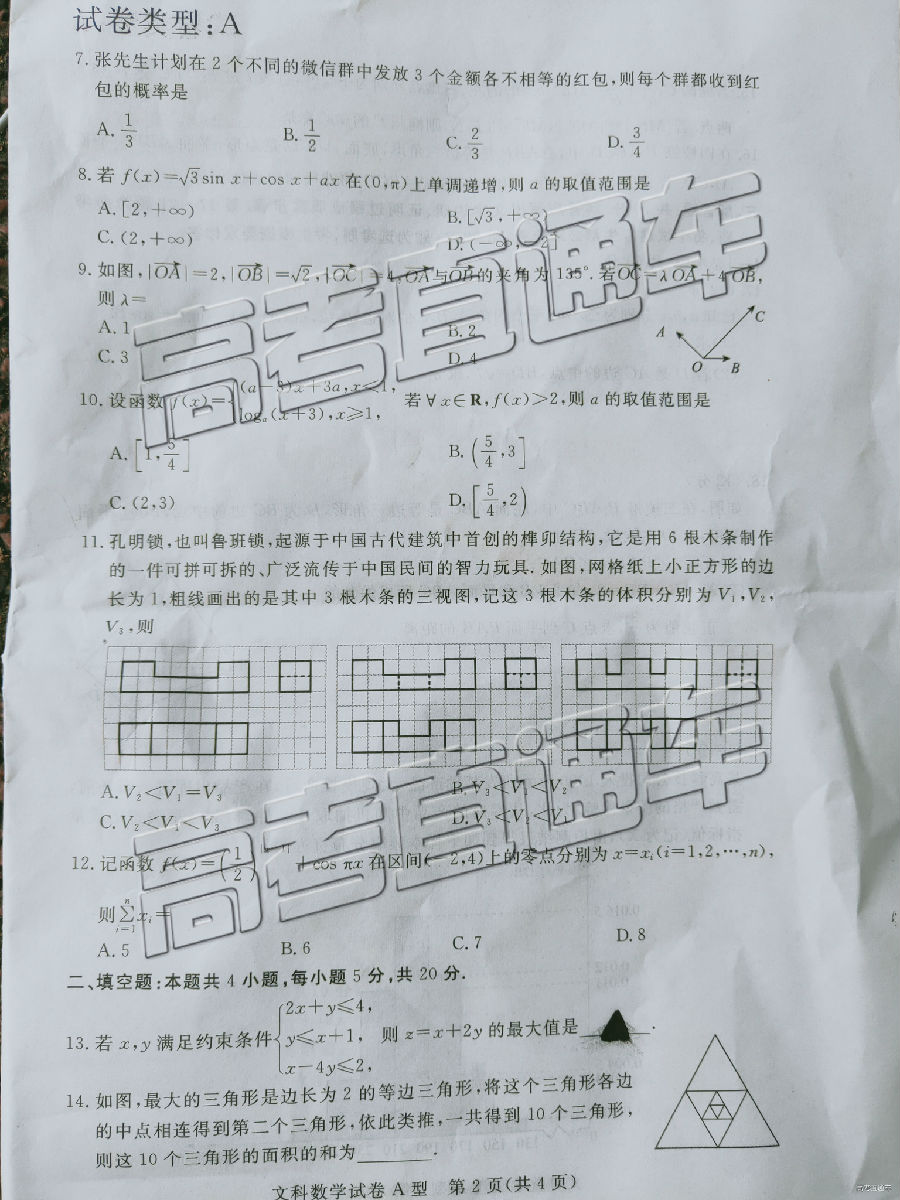 试卷类型:A
7. 张先生计划在 2 个不同的微信群中发放 3 个金额各不相等的红包,则每个群都收到红
包的概率是
A. 1/3 B. 1/2 C. 2/3 D. 3/4
8. 若 f(x)=√3sin x+cos x+ax 在(0,π)上单调递增,则 a 的取值范围是
A. [2,+∞) B. [√3,+∞)
C. (2,+∞) D. (-∞,-2]
9. 如图,|OA|=2,|OB|=√2,|OC|=4,OA与OB的夹角为 135°. 若OC=λOA+4OB,
则 λ=
A. 1 B. 2
C. 3 D. 4
A C O B
10. 设函数 f(x)={(a-3)x+3a,x<1,
logₐ(x+3),x≥1,
若 ∀x∈R,f(x)>2,则 a 的取值范围是
A. [1,5/4] B. (5/4,3]
C. (2,3) D. [5/4,2)
11. 孔明锁,也叫鲁班锁,起源于中国古代建筑中首创的榫卯结构,它是用 6 根木条制作
的一件可拼可拆的、广泛流传于中国民间的智力玩具. 如图,网格纸上小正方形的边
长为 1,粗线画出的是其中 3 根木条的三视图,记这 3 根木条的体积分别为 V₁,V₂,
V₃,则
A. V₂<V₁=V₃ B. V₃<V₁<V₂
C. V₂<V₁<V₃ D. V₃<V₂<V₁
12. 记函数 f(x)=(1/2) +cos πx 在区间(-2,4)上的零点分别为 x=xᵢ(i=1,2,…,n),
则 ∑ⁿᵢ₌₁ xᵢ=
A. 5 B. 6 C. 7 D. 8
二、填空题:本题共 4 小题,每小题 5 分,共 20 分.
13. 若 x,y 满足约束条件{2x+y≤4,
y≤x+1, 则 z=x+2y 的最大值是 .
x-4y≤2,
14. 如图,最大的三角形是边长为 2 的等边三角形,将这个三角形各边
的中点相连得到第二个三角形,依此类推,一共得到 10 个三角形,
则这 10 个三角形的面积的和为________.
文科数学试卷 A 型 第 2 页(共 4 页)
高考直通车
高考直通车